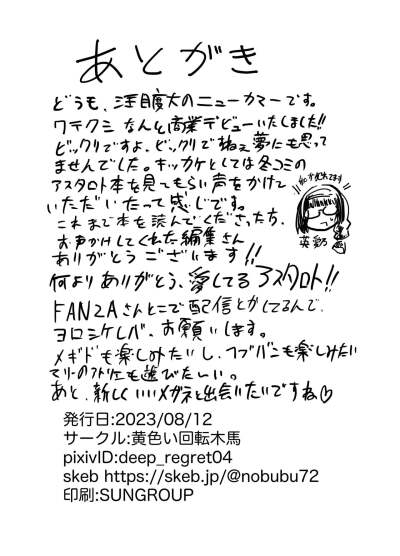 あとがき
どうも、注目度大のニューカマーです。
ワテクシ なんと商業デビューいたしました!!
ビックリですよ、ビックリでねぇ夢にも思って
ませんでした。キッカケとしては冬コミの
アスタロト本を見てもらい声をかけて
いただいたって感じです。
これまで本を読んでくださった方、
お声かけしてくれた編集さん
ありがとうございます!!
何よりありがとう、愛してるアスタロト!!
FANZAさんとこで配信とかしてるんで、
ヨロシケレバ、お願いします。
メギドも楽しみたいし、ブババンも楽しみたい
マリーのアトリエも遊びたいい。
あと、新しくいいメガネと出会いたいですね♡
英彩
発行日:2023/08/12
サークル:黄色い回転木馬
pixivID:deep_regret04
skeb https://skeb.jp/@nobubu72
印刷:SUNGROUP